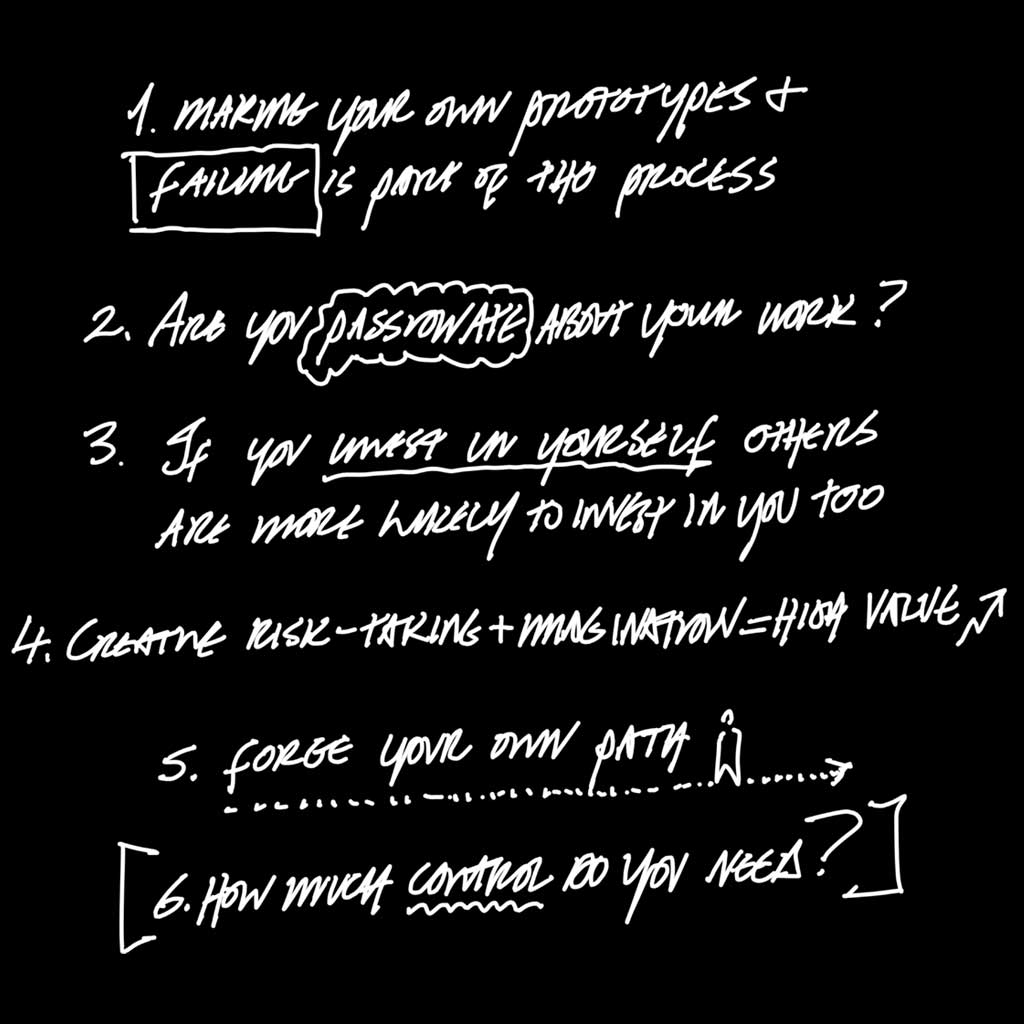 1. MAKING YOUR OWN PROTOTYPES +
FAILING IS PART OF THE PROCESS
2. ARE YOU PASSIONATE ABOUT YOUR WORK?
3. If YOU INVEST IN YOURSELF OTHERS
ARE MORE LIKELY TO INVEST IN YOU TOO
4. CREATIVE RISK-TAKING + IMAGINATION = HIGH VALUE
5. FORGE YOUR OWN PATH
6. HOW MUCH CONTROL DO YOU NEED?